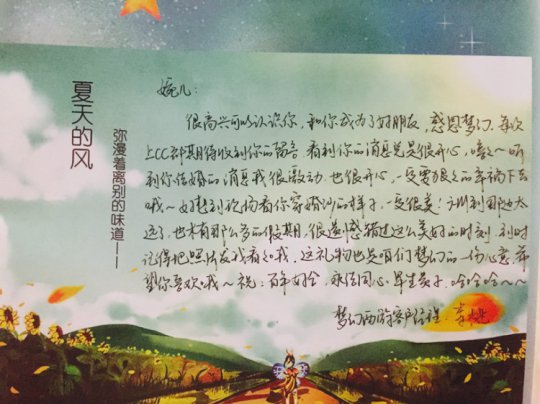 夏天的风
弥漫着离别的味道——
婉儿：
很高兴可以认识你，和你成为了好朋友，感恩梦幻。每次
上CC都期待收到你的留言，看到你的消息总是很开心，嘻~听
到你结婚的消息我很激动，也很开心，一定要狠狠的幸福下去
哦~好想到现场看你穿婚纱的样子，一定很美！广州到那边太
远了，也木有那么多的假期，很遗憾错过这么美好的时刻，到时
记得把照片发我看看哦，这礼物也是咱们梦幻的一份心意，希
望你喜欢哦~祝：百年好合，永结同心，早生贵子，哈哈哈~~
梦幻西游客户经理：